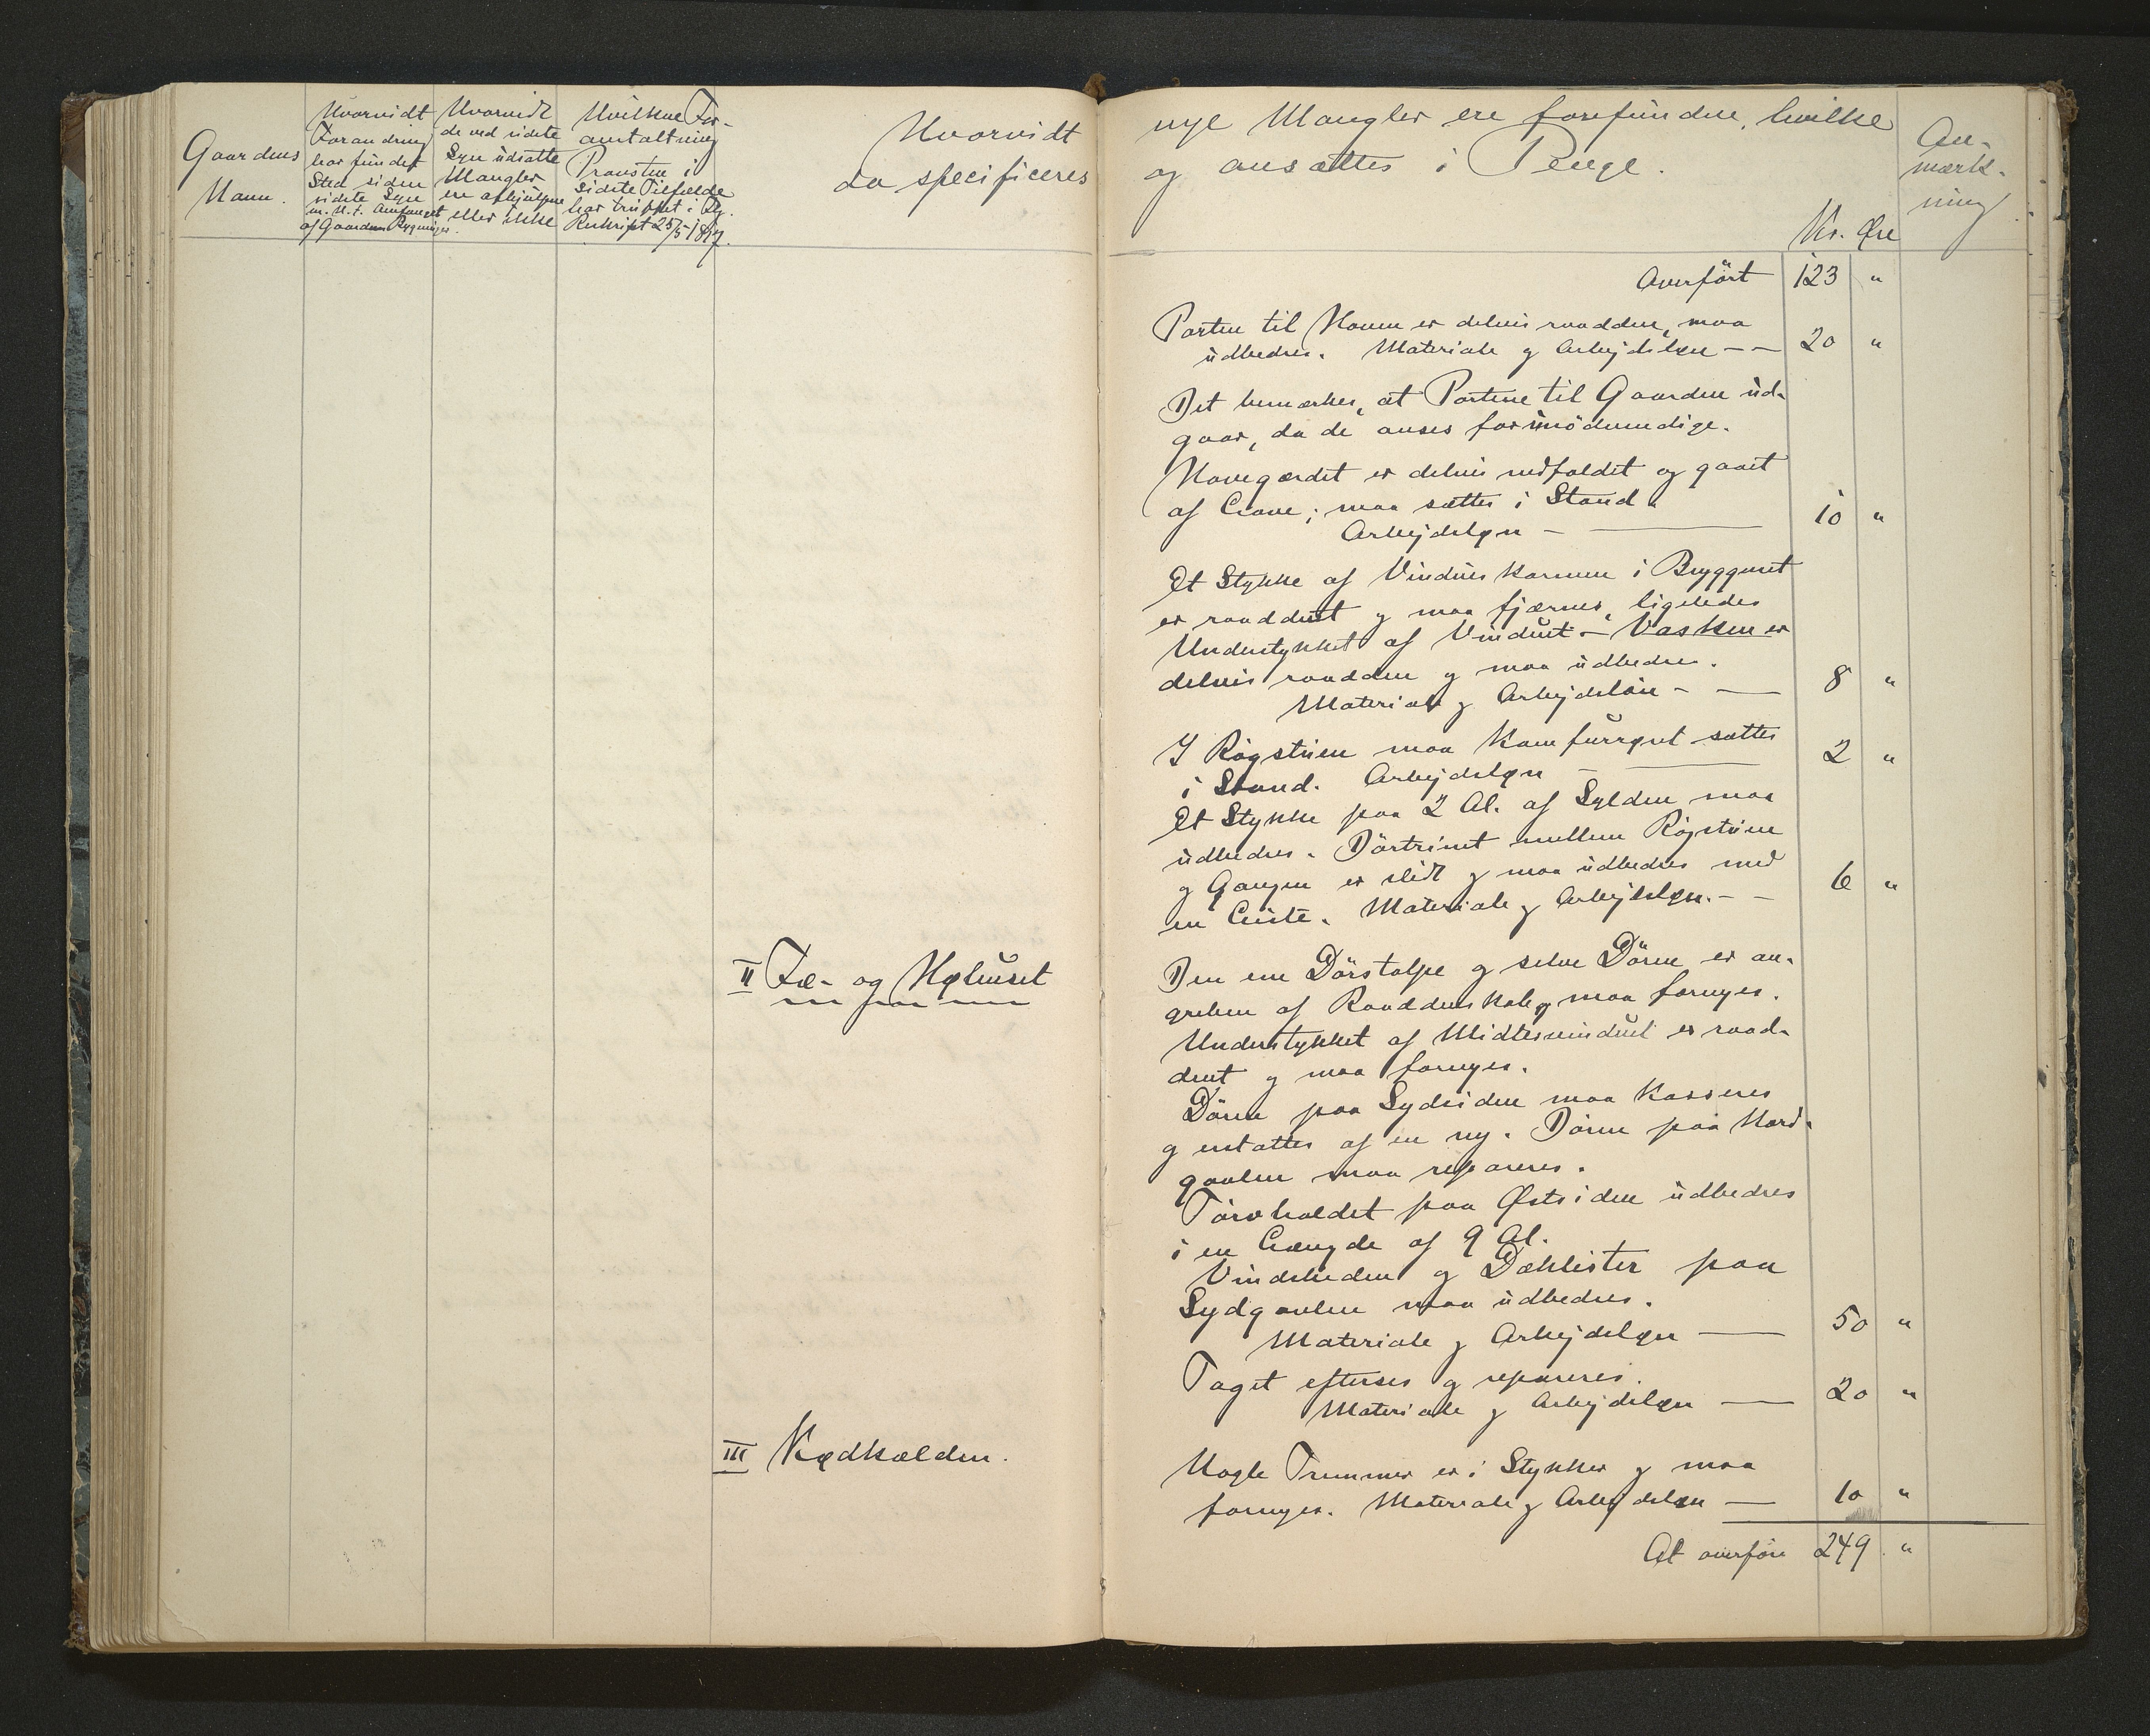 Gaardens
Navn.
Hvorvidt
Forandring
har fundet
Sted siden
sidste Syn
m. H. t. Omfanget
af Gaardens Bygninger.
Hvorvidt
de ved sidste
Syn udsatte
Mangler
ere afhjulpne
eller ikke
Hvilken For-
anstaltning
Provsten i
sidste Tilfælde
har truffet i Flg.
Reskript 25/5 1817.
Hvorvidt
da specificeres
nye Mangler ere forefundne, hvilke
og ansættes i Penge.
An-
mærk-
ning
Kr. Øre
Overført 123 "
Porten til Haven er delvis raadden, maa
udbedres. Materiale og Arbejdsløn — — 20 "
Det bemærkes, at Portene til Gaarden ud-
gaar, da de anses for unödvendige.
Havegærdet er delvis nedfaldet og gaaet
af Lave; maa sættes i Stand.
Arbejdsløn — 10 "
Et Stykke af Vindueskarmen i Bryggeriet
er raaddent og maa fjærnes, ligeledes
Understykket af Vinduet — Vasken er
delvis raadden og maa udbedres.
Materiale og Arbejdslön — 8 "
I Røgstuen maa Komfurrøret sættes
i Stand. Arbejdsløn — 2 "
Et Stykke paa 2 Al. af Sylden maa
udbedres. Dörtrinet mellem Røgstuen
og Gangen er slidt og maa udbedres med
en Liste. Materiale og Arbejdsløn. — — 6 "
II Fæ- og Høhuset
Den ene Dörstolpe og selve Dören er an-
greben af Raaddenskab og maa fornyes.
Understykket af Midtervinduet er raad-
dent og maa fornyes.
Dören paa Sydsiden maa kasseres
og erstattes af en ny. Dören paa Nord-
gavlen maa repareres.
Törvholdet paa Østsiden udbedres
i en Længde af 9 Al.
Vindskeden og Dæklister paa
Sydgavlen maa udbedres.
Materiale og Arbejdsløn — 50 "
Taget efterses og repareres.
Materiale og Arbejdsløn — 20 "
III Kødkælden.
Nogle Trummer er i Stykker og maa
fornyes. Materiale og Arbejdsløn — 10 "
At overføre 249 "